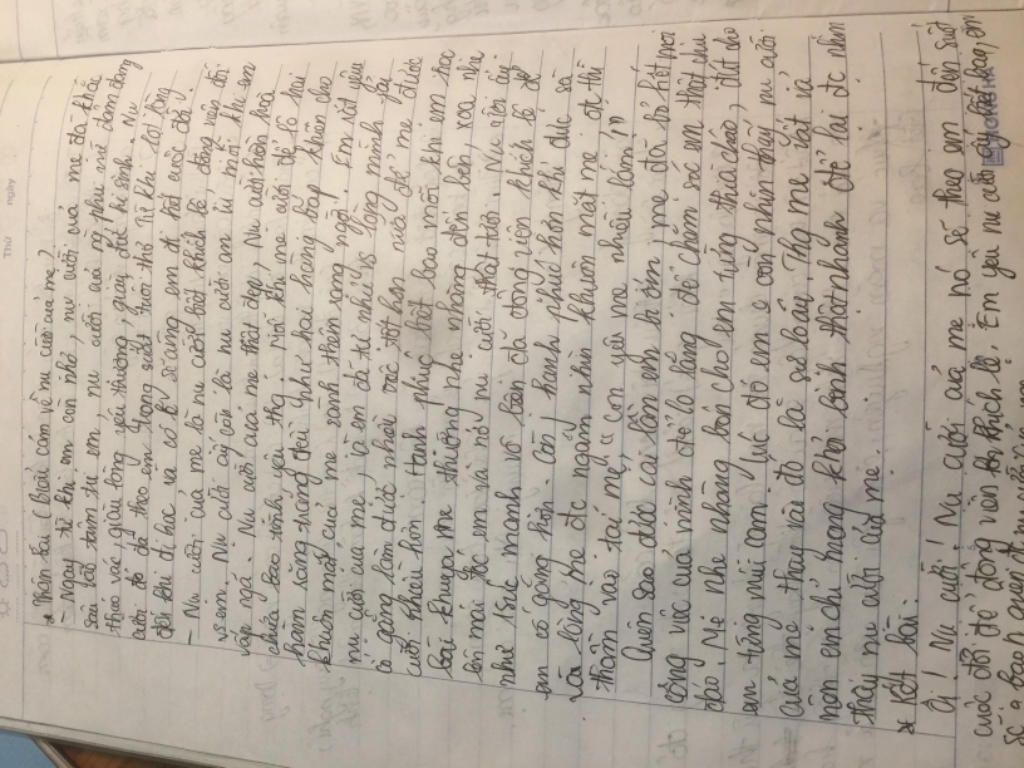 Thứ
ngày
* Thân bài (Biểu cảm về nụ cười của mẹ?
- Ngay từ khi em còn nhỏ, nụ cười của mẹ đã khắc
sâu vào tâm trí em, nụ cười của người phụ nữ đảm đang
tháo vác, giàu lòng yêu thương, giàu đức hi sinh. Nụ
cười đó đã theo em trong suốt tuổi thơ từ khi lọt lòng
đến khi đi học và có lẽ sẽ cùng em đi hết cuộc đời.
- Nụ cười của mẹ là nụ cười khích lệ, động viên đối
vs em. Nụ cười ấy còn là nụ cười an ủi mỗi khi em
vấp ngã. Nụ cười của mẹ thật đẹp, nụ cười hiền hoà
chứa bao tình yêu thg mỗi khi mẹ cười để lộ hai
hàm răng trắng đều như hai hàng bắp khiến cho
khuôn mặt của mẹ sánh thêm rạng ngời. Em rất yêu
nụ cười của mẹ, là em đã tự nhủ vs lòng mình phải
cố gắng làm được, phải tốt hơn nữa để mẹ được
cười nhiều hơn. Hạnh phúc biết bao mỗi khi em học
bài khuya mẹ thường nhẹ nhàng đến bên, xoa nhẹ
lên mái tóc em và nở nụ cười thật tươi. Nụ cười ấy
như 1 sức mạnh vô bờ đã động viên khích lệ để
em cố gắng hơn. Còn hạnh phúc hơn khi được sà
vào lòng mẹ đc ngắm nhìn khuôn mặt mẹ đc thì
thầm vào tai mẹ, "con yêu mẹ nhiều lắm!"
Quên sao được cái lần em bị ốm mẹ đã bỏ hết mọi
công việc của mình để lo lắng để chăm sóc em thật chu
đáo. Mẹ nhẹ nhàng bón cho em từng thìa cháo, đút cho
em từng múi cam, lúc đó em k còn nhìn thấy nụ cười
của mẹ thay vào đó là sự lo âu. Thg mẹ thật và
nên em chỉ mong khỏi bệnh thật nhanh để lại đc nhìn
thấy nụ cười của mẹ.
* Kết bài.
Ôi! Nụ cười! Nụ cười của mẹ nó sẽ theo em đến suốt
cuộc đời để động viên khích lệ. Em yêu nụ cười ấy biết bao, em